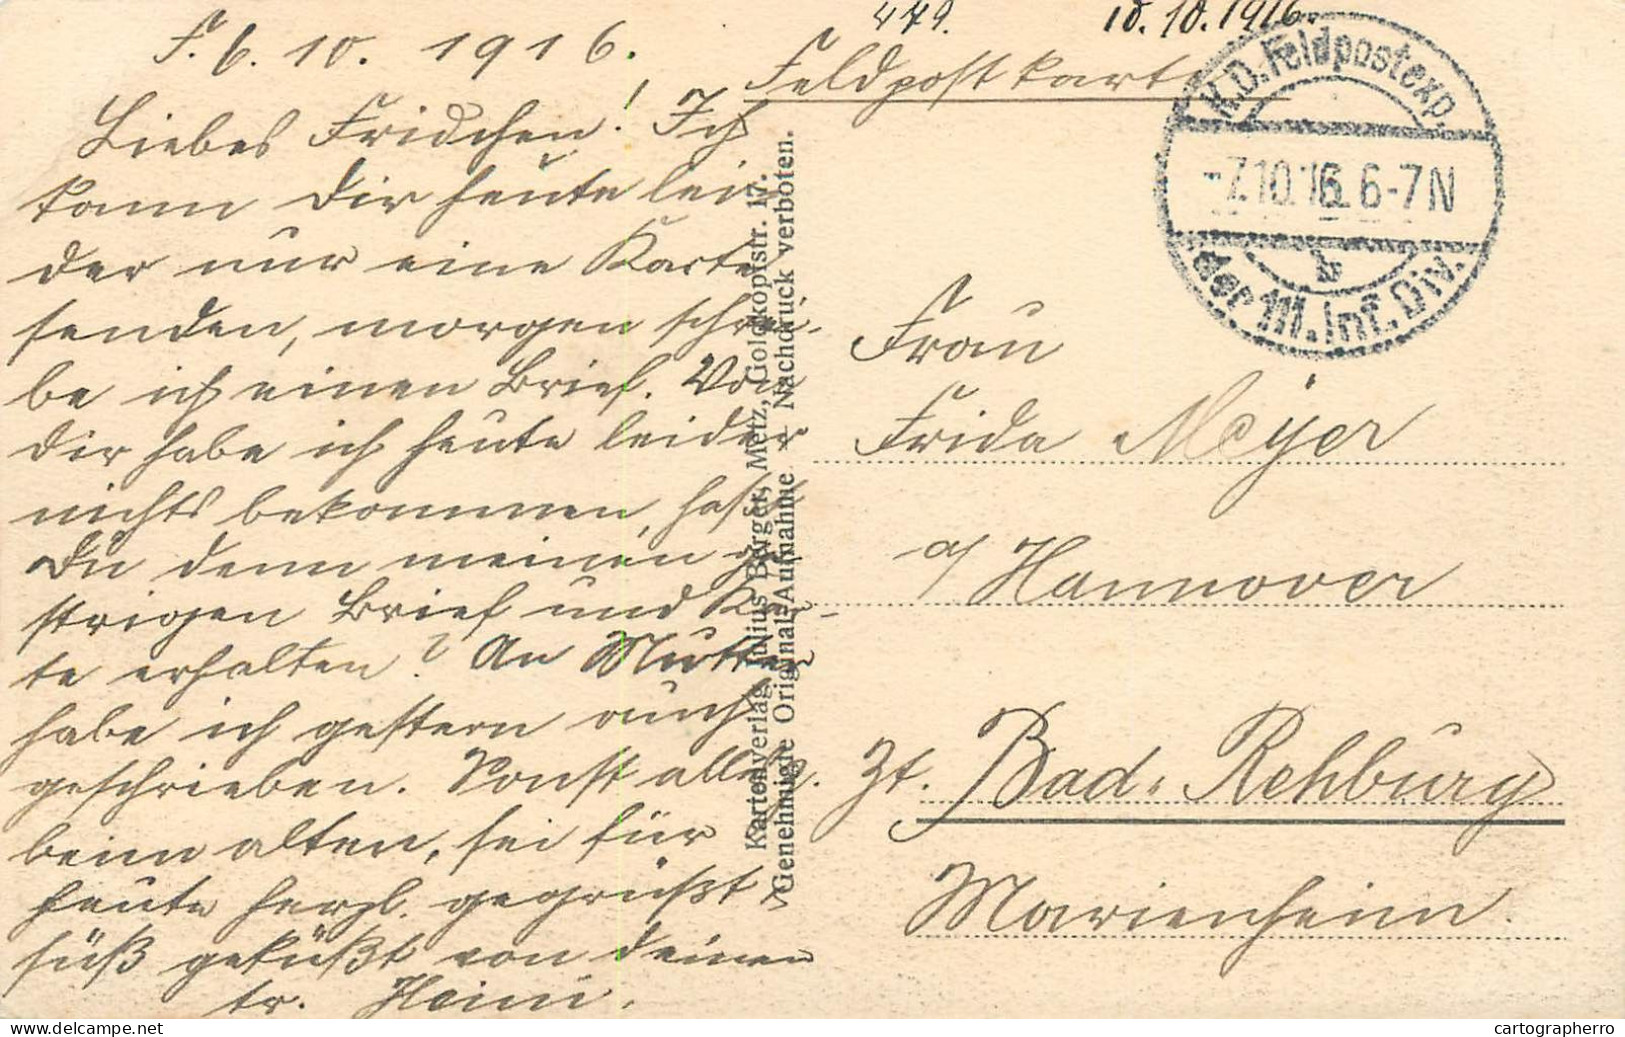 479. 10.10.1916.
F. 6. 10. 1916.
Feldpostkarte
Liebes Fridchen! Ich
kann Dir heute lei-
der nur eine Karte
senden, morgen schrei-
be ich einen Brief. Von
Dir habe ich heute leider
nichts bekommen, hast
Du denn meinen ge-
strigen Brief und Kar-
te erhalten? An Mutter
habe ich gestern auch
geschrieben. Sonst alles
beim alten, sei für
heute herzl. gegrüßt u.
süß geküßt von deinem
tr. Heini.
K.D. Feldpostexp.
-7.10.16. 6-7N
b
der 111. Inf. Div.
Frau
Frida Meyer
a/ Hannover
Zt. Bad. Rehburg
Marienheim.
Kartenverlag Julius Berger, Metz, Goldkopfstr. 17.
Genehmigte Original-Aufnahme - Nachdruck verboten.
delcampe.net
cartographerro